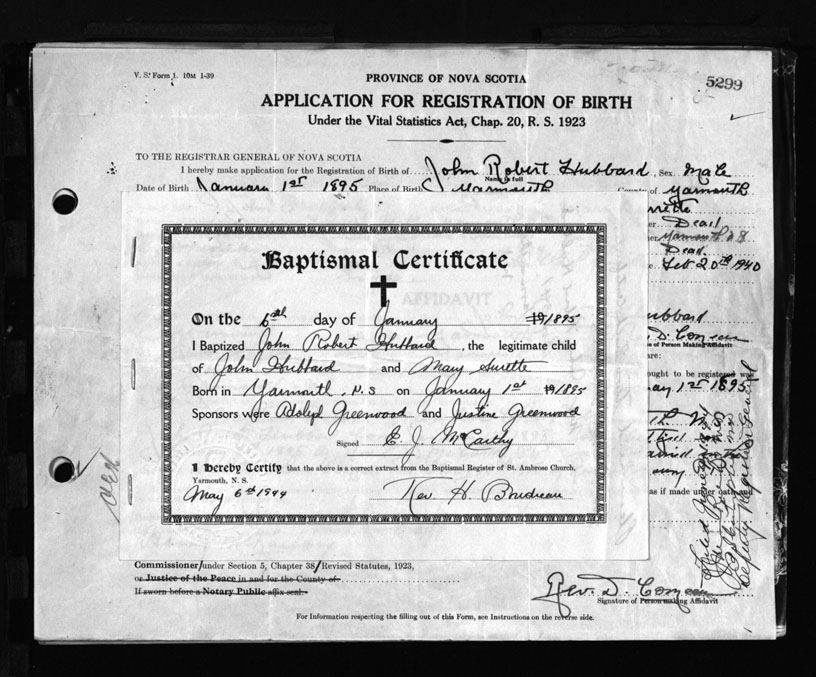 V. S. Form 1. 10M 1-39
PROVINCE OF NOVA SCOTIA
5299
APPLICATION FOR REGISTRATION OF BIRTH
Under the Vital Statistics Act, Chap. 20, R. S. 1923
TO THE REGISTRAR GENERAL OF NOVA SCOTIA
I hereby make application for the Registration of Birth of John Robert Hubbard, Sex Male
Name in full
Date of Birth January 1st 1895 Place of Birth Yarmouth County of Yarmouth
Dead
Yarmouth
Dead
Feb 20th 1940
Baptismal Certificate
AFFIDAVIT
On the 6th day of January 19 1895
I Baptized John Robert Hubbard, the legitimate child
of John Hubbard and Mary Surette
Born in Yarmouth, N.S on January 1st 19 1895
Sponsors were Adolph Greenwood and Justine Greenwood
Signed E. J. McCarthy
I Hereby Certify that the above is a correct extract from the Baptismal Register of St. Ambrose Church,
Yarmouth, N. S.
May 6th 1944 Rev. H. Boudreau
D. Comeau
of Person Making Affidavit
are:
ought to be registered was
1st 1895
as if made under oath and
Deputy Registrar General
Commissioner/under Section 5, Chapter 38/Revised Statutes, 1923,
or Justice of the Peace in and for the County of
If sworn before a Notary Public affix seal.
Rev. D. Comeau
Signature of Person making Affidavit
For Information respecting the filling out of this Form, see Instructions on the reverse side.